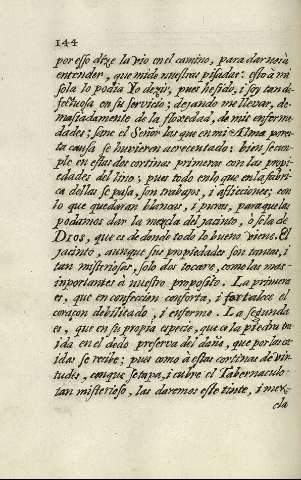 144
por esso dize la vio en el camino, para darnos à
entender, que mide nuestras pisadas: esso à mi
sola lo podia Yo dezir, pues he sido, i soy tan de-
fectuosa en su servicio; dejando me llevar, de-
masiadamente de la floxedad, de mis enferme-
dades; sane el Señor las que en mi Alma por es-
ta causa se huvieren acrecentado: bien se cum-
ple en estas dos cortinas primeras con las propi-
edades del lino; pues todo en lo que en la fabri-
ca dellas se pasa, son trabajos, i aflicciones; con
lo que quedaràn blancas, i puras, para que las
podamos dar la mezcla del jacinto, ò sea de
DIOS, que es de donde todo lo bueno viene. El
jacinto, aunque sus propiedades son tantas, i
tan misteriosas, solo dos tocarè, como las mas
importantes à nuestro proposito. La primera
es, que en confeccion conforta, i fortalece el
coraçon debilitado, i enfermo. La segunda
es, que en su propia especie, que es la piedra tra-
ida en el dedo preserva del daño, que por las oc-
idas se recibe; pues como à estas cortinas de vir-
tudes, con que se tapa, i cubre el Tabernaculo
tan misterioso, las daremos este tinte, i mez-
cla